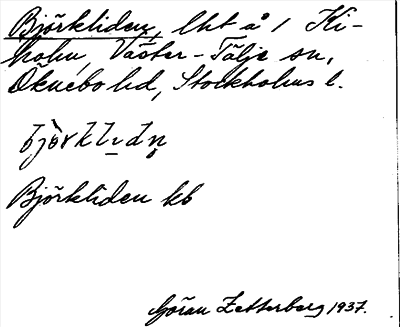 Björkliden, lht å 1 Ki-
holm, Väster-Tälje sn,
Öknebo hd, Stockholms l.
bjö̀rklı̱dn̥
Björkliden kb
Göran Zetterberg 1937.